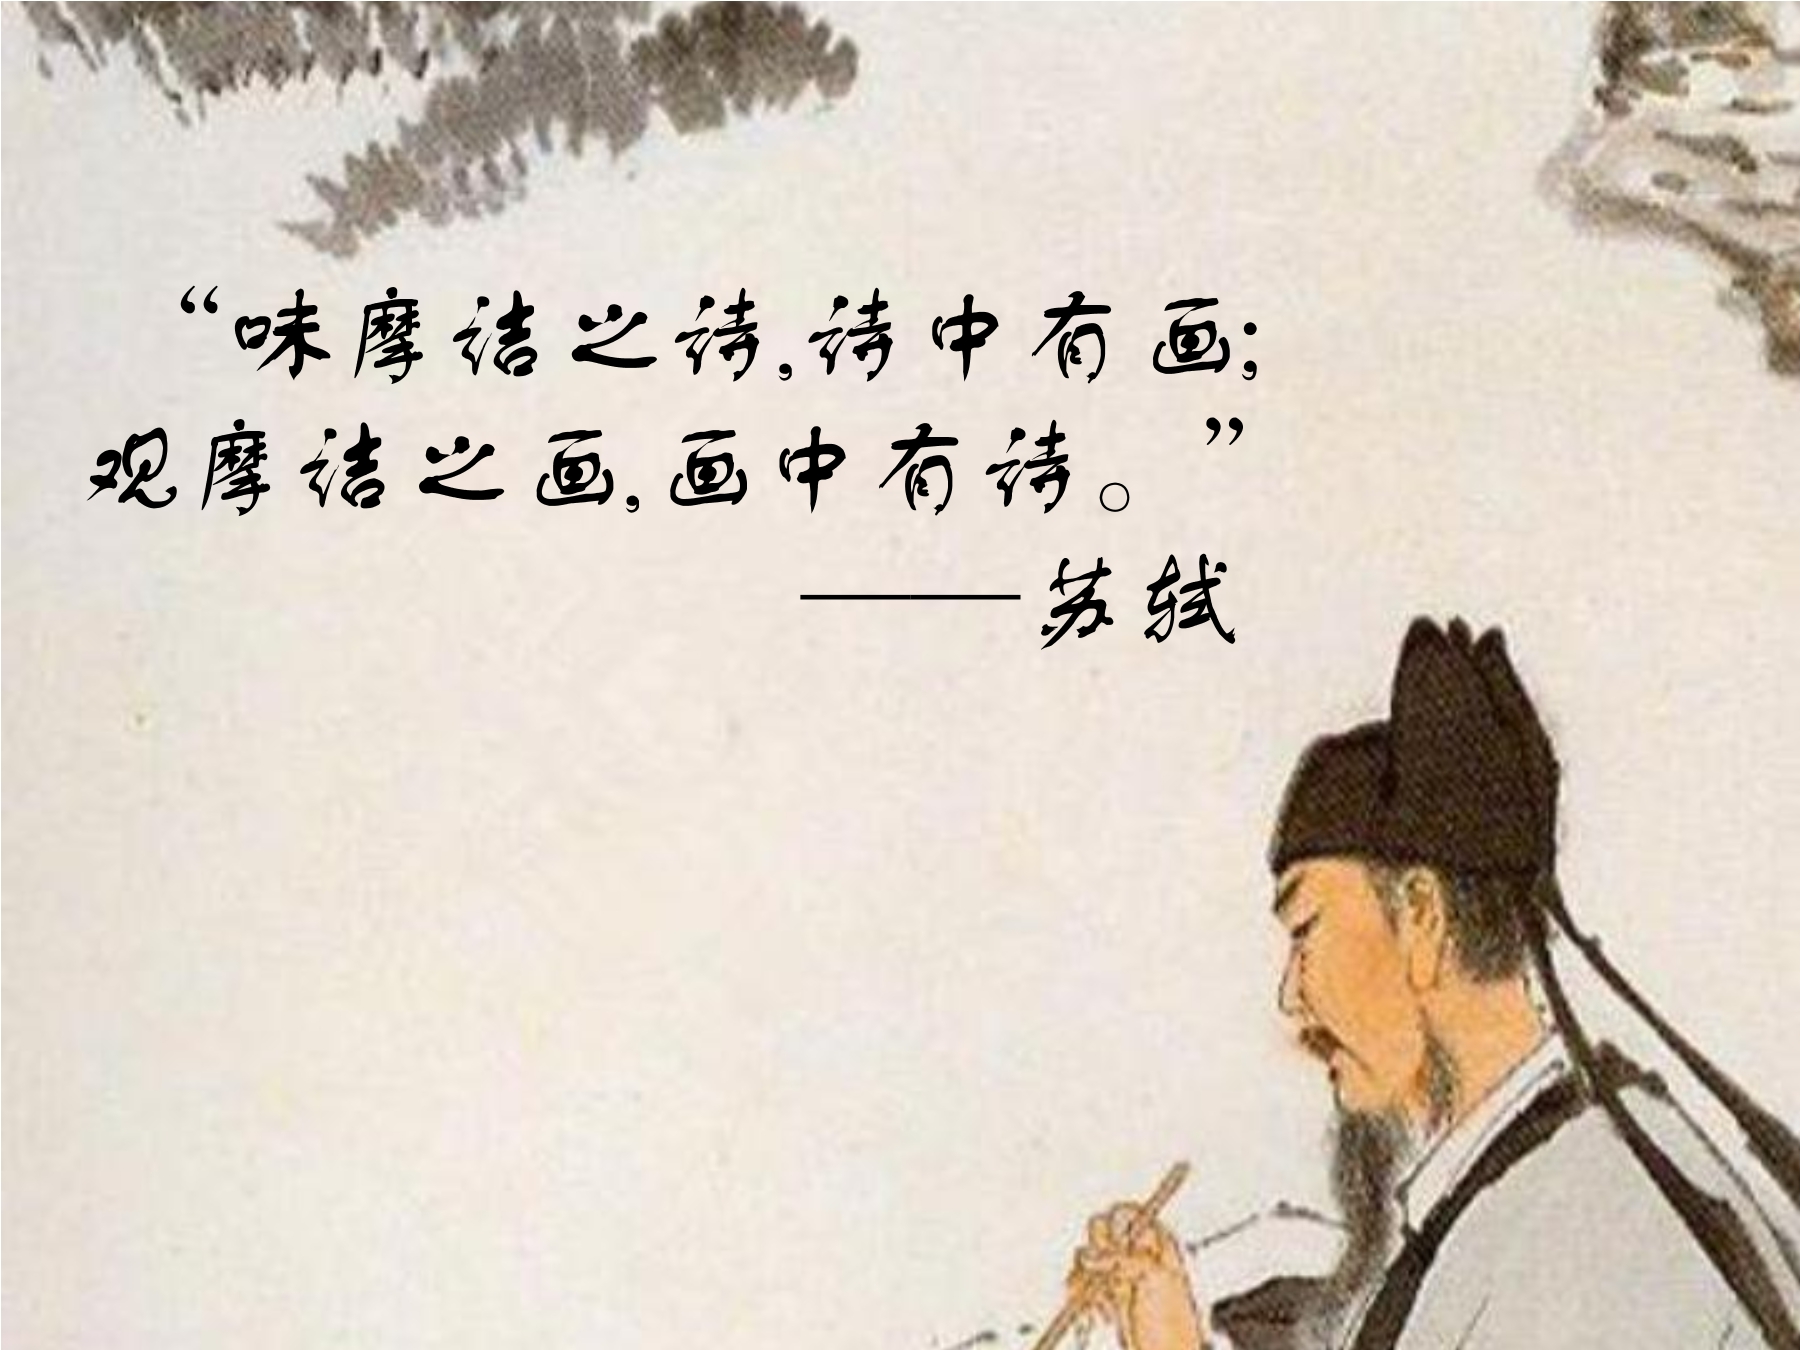 “味摩诘之诗,诗中有画;
观摩诘之画,画中有诗。”
——苏轼